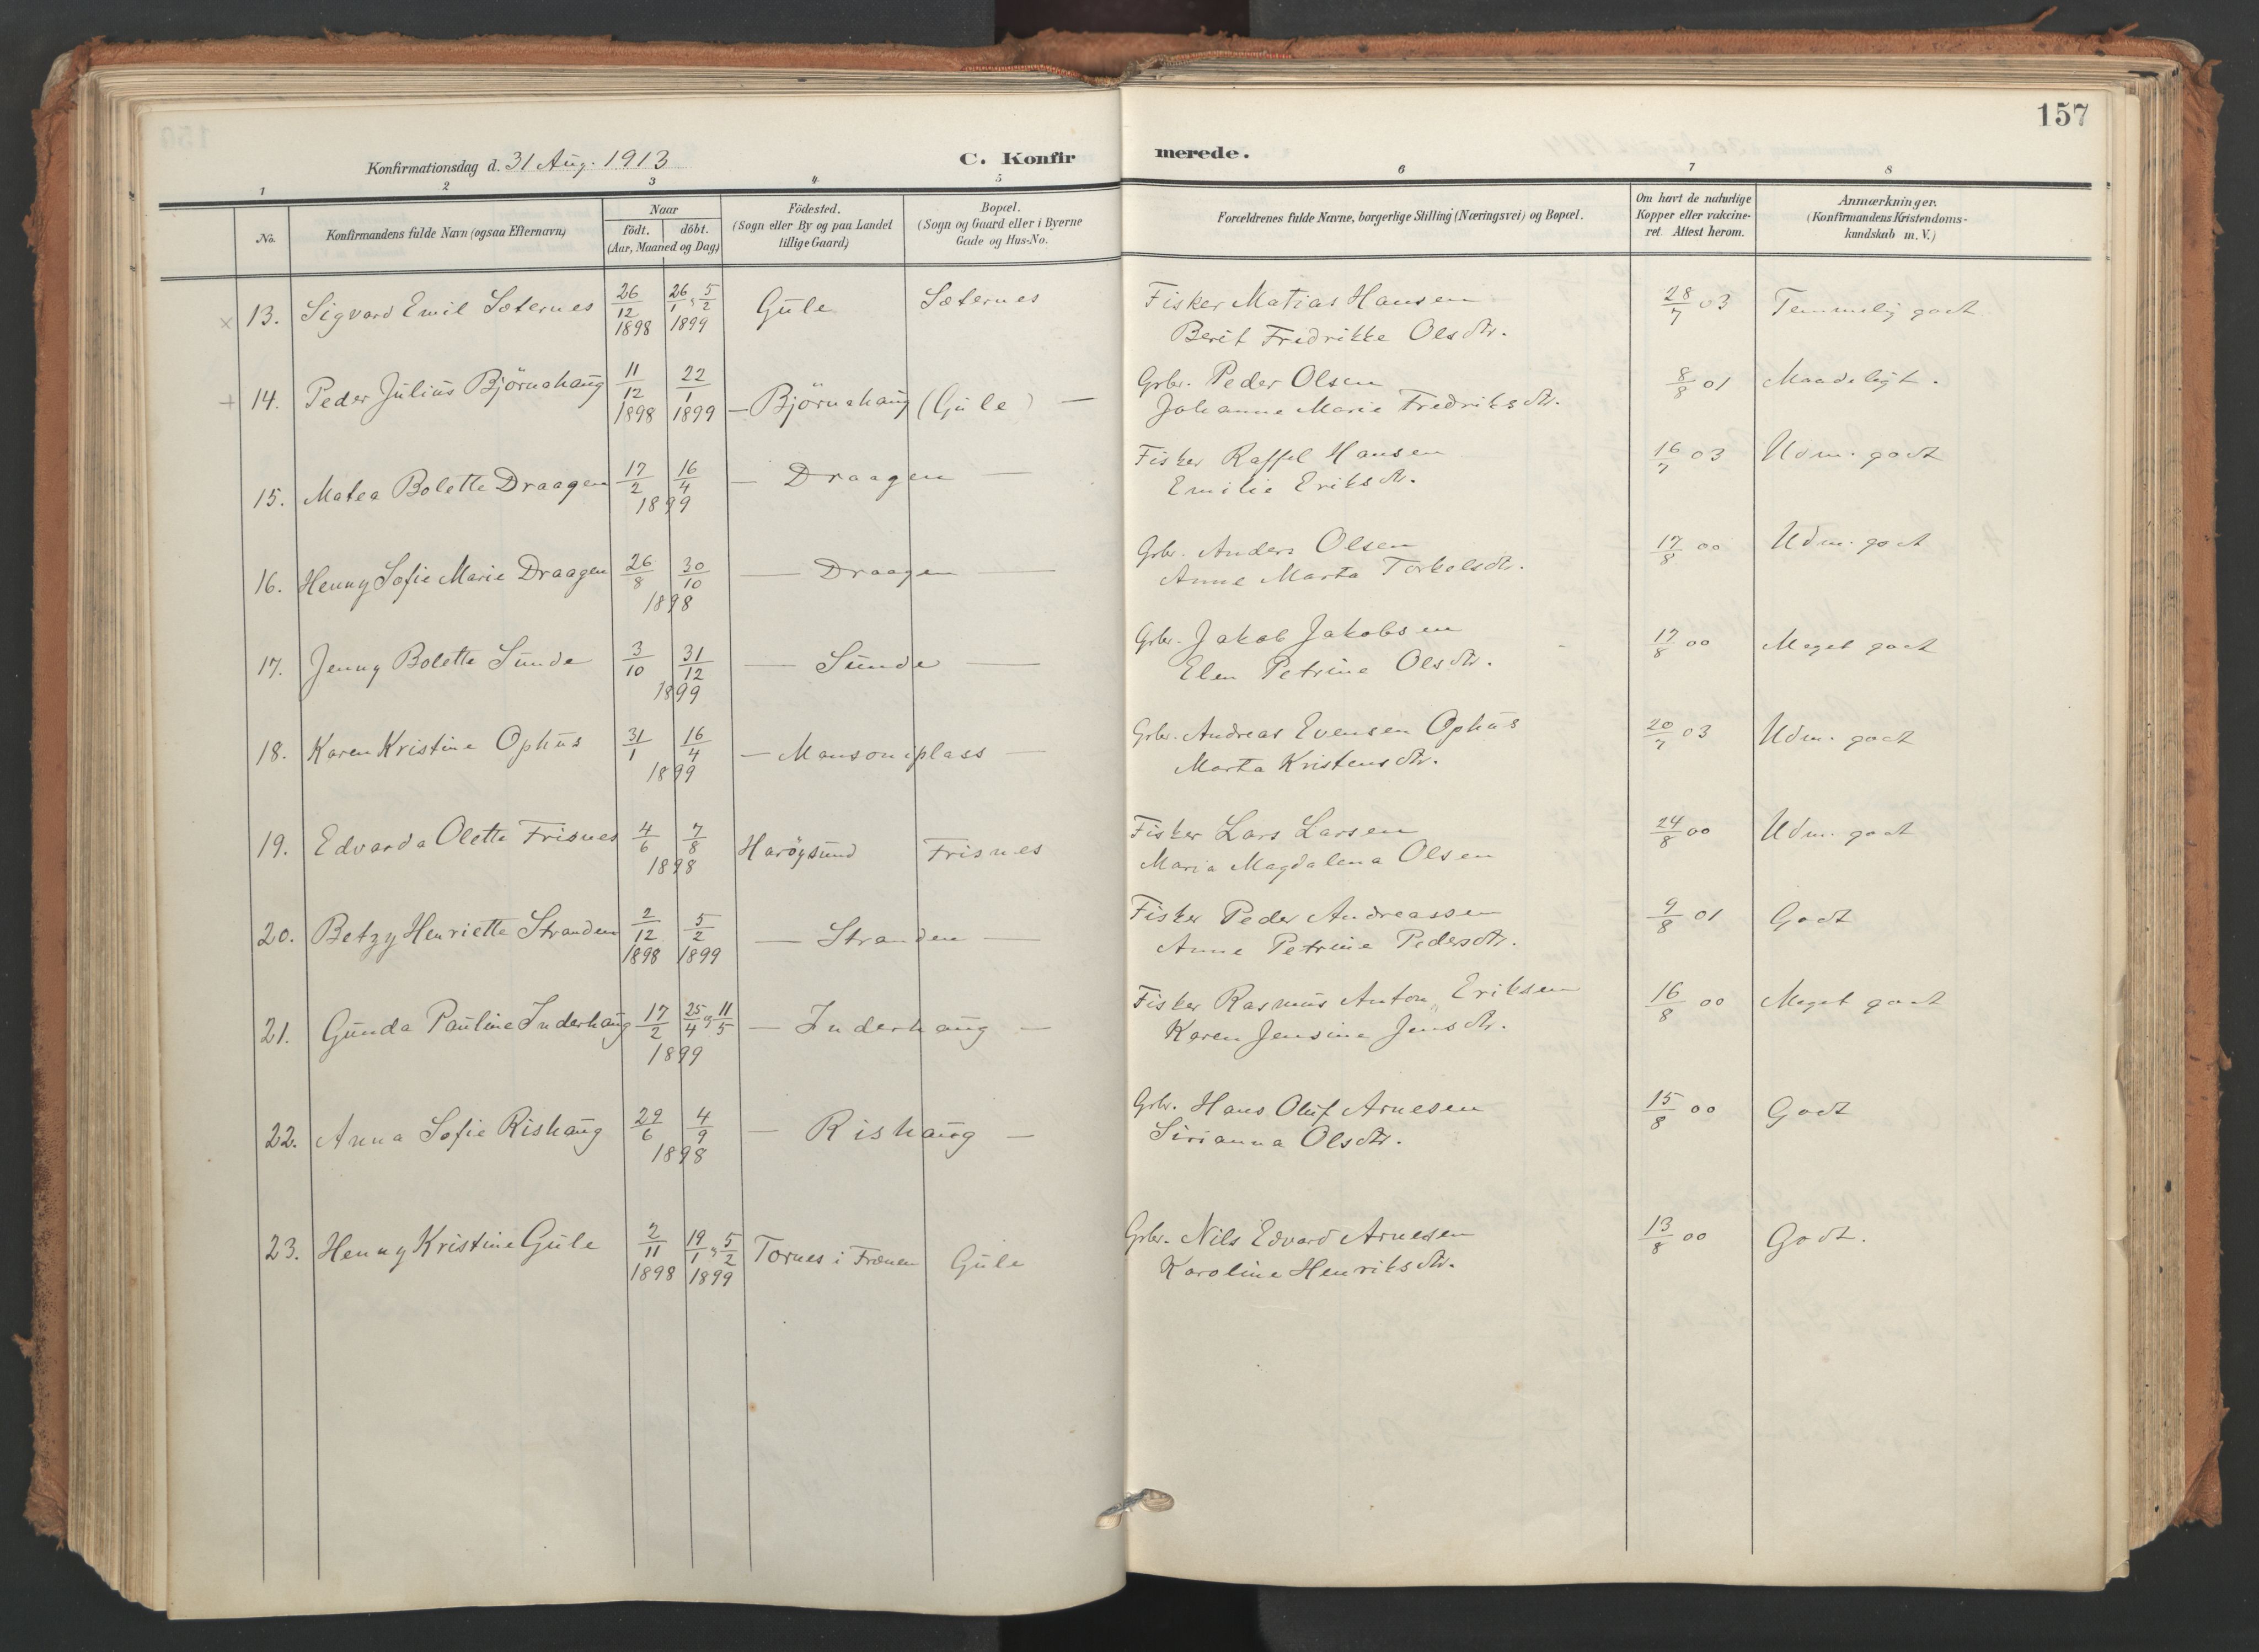 157
Konfirmationsdag d. 31 Aug. 1913
C. Konfirmerede.
1 2 3 4 5 6 7 8
No.
Konfirmandens fulde Navn (ogsaa Efternavn)
Naar
födt. döbt.
(Aar, Maaned og Dag)
Födested.
(Sogn eller By og paa Landet
tillige Gaard)
Bopæl.
(Sogn og Gaard eller i Byerne
Gade og Hus-No.
Forældrenes fulde Navne, borgerlige Stilling (Næringsvei) og Bopæl.
Om havt de naturlige
Kopper eller vakcine-
ret. Attest herom.
Anmærkninger.
(Konfirmandens Kristendoms-
kundskab m. V.)
× 13. Sigvard Emil Sæternes 26/12 1898 26/1 & 5/2 1899 Gule Sæternes Fisker Matias Hansen 28/7 03 Temmelig godt
Berit Fredrikke Olsdtr.
+ 14. Peder Julius Björnahaug 11/12 1898 22/1 1899 — Björnahaug (Gule) — Grbr. Peder Olsen 8/8 01 Maadeligt.
Johanne Marie Fredriksdtr.
15. Matea Bolette Draagen 17/2 16/4 1899 — Draagen — Fisker Raffel Hansen 16/7 03 Udm. godt
Emilie Eriksdtr.
16. Henny Sofie Marie Draagen 26/8 30/10 1898 — Draagen — Grbr. Anders Olsen 17/8 00 Udm. godt
Anne Marta Torkelsdtr.
17. Jenny Bolette Sunde 3/10 31/12 1899 — Sunde — Grbr. Jakob Jakobsen 17/8 00 Meget godt
Elen Petrine Olsdtr.
18. Karen Kristine Ophus 31/1 16/4 1899 — Mansoniplass — Grbr. Andreas Evensen Ophus 20/7 03 Udm. godt
Marta Kristensdtr.
19. Edvarda Olette Frisnes 4/6 7/8 1898 Haröysund Frisnes Fisker Lars Larsen 24/8 00 Udm. godt
Maria Magdalena Olsen
20. Betzy Henriette Stranden 2/12 1898 5/2 1899 — Stranden — Fisker Peder Andreassen 9/8 01 Godt
Anne Petrine Pedersdtr.
21. Gunda Pauline Inderhaug 17/2 25/4 & 11/5 1899 — Inderhaug — Fisker Rasmus Anton Eriksen 16/8 00 Meget godt
Karen Jensine Jensdtr.
22. Anna Sofie Rishaug 29/6 4/9 1898 — Rishaug — Grbr. Hans Oluf Arnesen 15/8 00 Godt
Sirianna Olsdtr.
23. Henny Kristine Gule 2/11 1898 19/1 & 5/2 1899 Tornes i Frænen Gule Grbr. Nils Edvard Arnesen 13/8 00 Godt.
Karoline Henriksdtr.